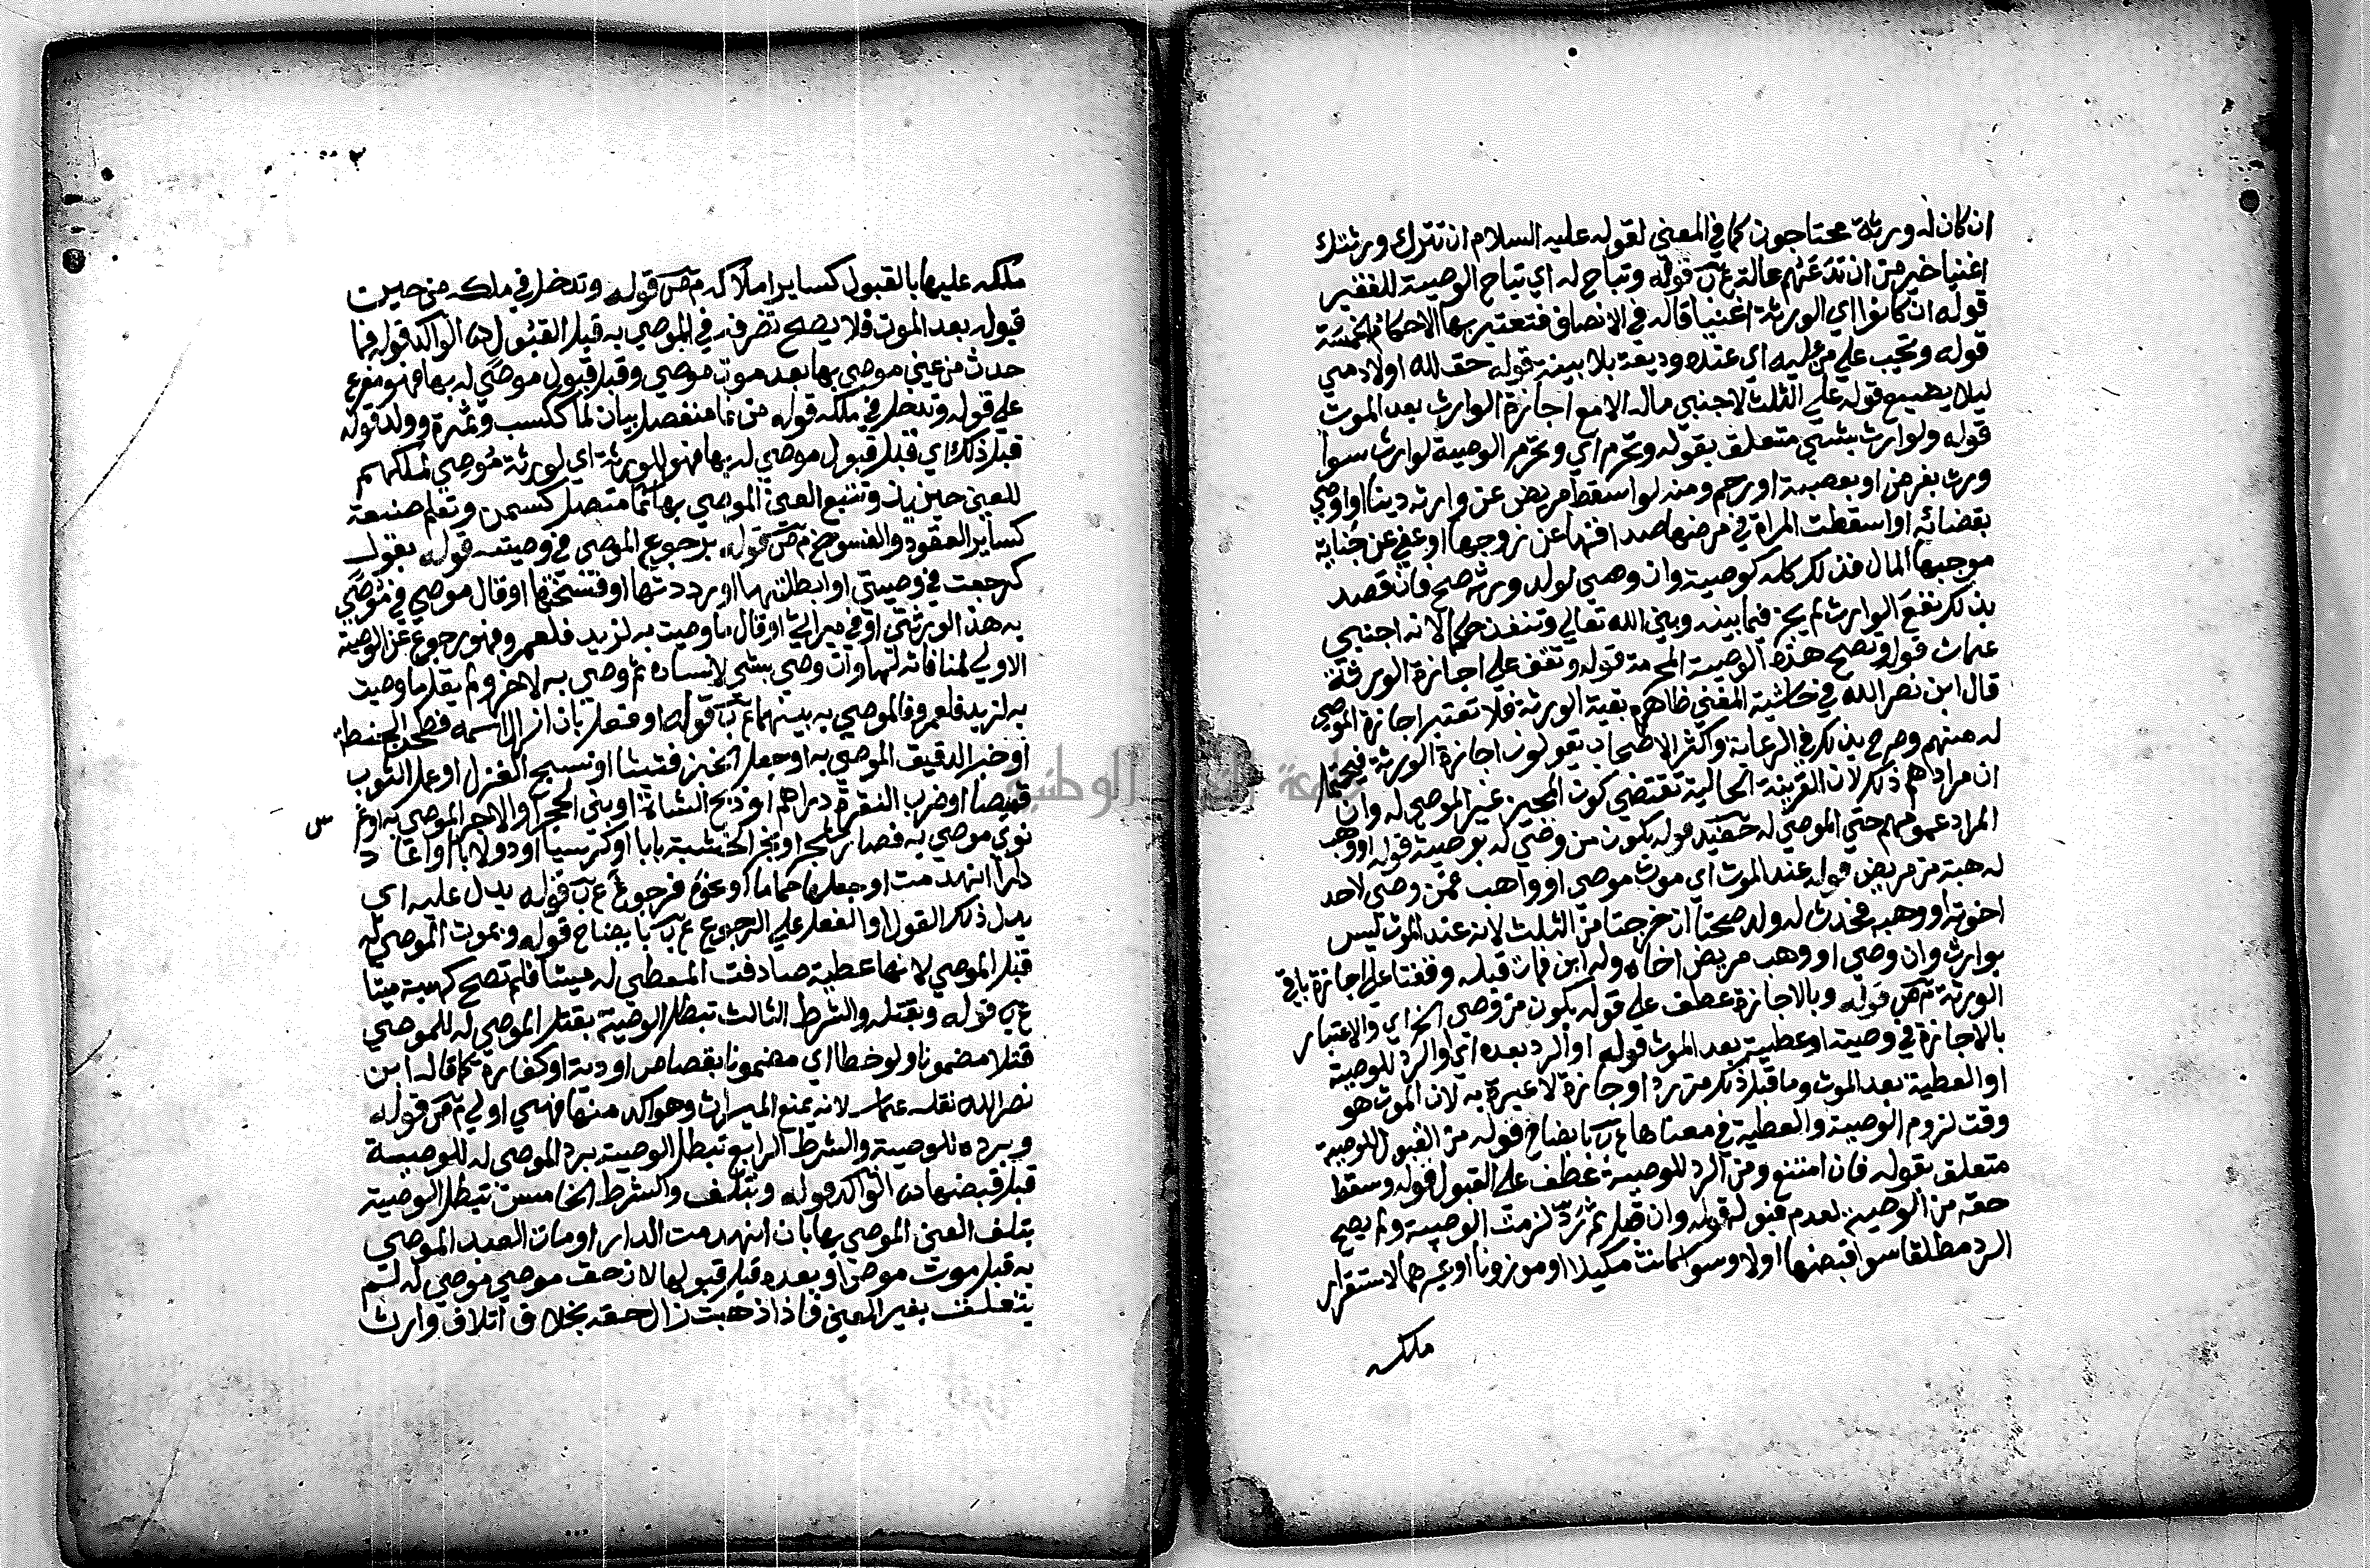 ان كان له ورثة محتاجون كما في المغني لقوله عليه السلام ان تترك ورثتك
اغنيا خير من ان تدعهم عالة ع ن قوله وتباح له اي تباح الوصية للفقير
قوله ان كانوا اي الورثة اغنيا قاله في الانصاف فتعتبر بها الاحكام الخمسة
قوله وتجب علي من عليه اي عنده وديعة بلا بينة قوله حق لله او لادمي
ليلا يضيع قوله علي الثلث لاجنبي ماله الا مع اجازة الوارث بعد الموت
قوله ولوارث بشي متعلق بقوله وتحرم اي وتحرم الوصية لوارث سوا
ورث بفرض او بعصبة او رحم ومنه لو اسقط مريض عن وارثه دينا او اوصي
بقضائه او اسقطت المراة في مرضها صداقها عن زوجها او عفي عن جناية
موجبها المال فذلك كله كوصية وان وصي لولد ورثه صح فان قصد
بذلك نفع الوارث لم يجز فيما بينه وبين الله تعالي وتنفذ حكما لانه اجنبي
قوله وتصح هذه الوصية المحرمة قوله وتقف علي اجازة الورثة
قال ابن نصر الله في حاشية المغني ظاهره بقية الورثة فلا تعتبر اجازة الموصي
له منهم وصرح بذلك في الرعاية وكثر الاصحاب يقولون اجازة الورثة فيحتمل
ان مرادهم ذلك لان القرينة الحالية تقتضي كون المجيز غير الموصي له وان
المراد عمومهم حتي الموصي له قوله بكون من وصي له بوصية قوله او وهب
له هبة من مريض قوله عند الموت اي موت موصي او واهب فمن وصي لاحد
اخوته او وهبه فحدث له ولد صحتا ان خرجتا من الثلث لانه عند الموت ليس
بوارث وان وصي او وهب مريض اخاه وله ابن فمات قبله وقفتا علي اجازة باقي
الورثة م ص قوله وبالاجازة عطف علي قوله بكون من وصي الخ اي والاعتبار
بالاجازة في وصية او عطية بعد الموت قوله او الرد بعده اي او الرد للوصية
او العطية بعد الموت وما قبل ذلك من رد او اجازة لا عبرة به لان الموت هو
وقت لزوم الوصية والعطية في معناها ع ن بايضاح قوله من القبول للوصية
متعلق بقوله فان امتنع ومن الرد للوصية عطف علي القبول قوله وسقط
حقه من الوصية لعدم قبوله قوله وان قبل ثم رد لزمت الوصية ولم يصح
الرد مطلقا سوا قبضها او لا وسوا كانت مكيلا او موزونا او غيرهما لاستقرار
ملكه
ملكه عليها بالقبول كساير املاكه م ص قوله وتدخل في ملكه من حين
قبوله بعد الموت فلا يصح تصرفه في الموصي به قبل القبول هذا الوالد قوله فما
حدث من عين موصي بها بعد موت موصي وقبل قبول موصي له بها فهو مفرع
علي قوله وتدخل في ملكه قوله من نما منفصل بيان لما ككسب وثمرة وولد قوله
قبل ذلك اي قبل قبول موصي له بها فهو للورثة اي لورثة موصي لملكهم
للعين حينئذ وتتبع العين الموصي بها نما متصل كسمن وتعلم صنعة
كساير العقود والفسوخ م ص قوله برجوع الموصي في وصيته قوله بقول
كرجعت في وصيتي او ابطلتها او رددتها او فسختها او قال موصي في موصي
به هذا لورثتي او في ميراثي او قال ما وصيت به لزيد فلعمرو فهو رجوع عن الوصية
الاولي لمنافاته لها وان وصي بشي لانسان ثم وصي به لاخر ولم يقل ما وصيت
به لزيد فلعمرو فالموصي به بينهما ع ن قوله او فعل بان ازال اسمه فطحن الحنطة
او خبز الدقيق الموصي به او جعل الخبز فتيتا او نسج الغزل او عمل الثوب
قميصا او ضرب النقرة دراهم او ذبح الشاة او بني الحجر او الاجر الموصي به او غرس
نوي موصي به فصار شجرا او نجر الخشبة بابا او كرسيا او دولابا او اعاد
دارا انهدمت او جعلها حماما او نحوه فرجوع ع ن قوله يدل عليه اي
يدل ذلك القول او الفعل علي الرجوع ع ن بايضاح قوله وبموت الموصي له
قبل الموصي لانها عطية صادفت المعطي له ميتا فلم تصح كهبة ميتا
ع ن قوله وبقتله والشرط الثالث تبطل الوصية بقتل الموصي له للموصي
قتلا مضمونا ولو خطا اي مضمونا بقصاص او دية او كفارة كما قاله ابن
نصر الله نقله لانه يمنع الميراث وهو اكد منها فهي اولي م ص قوله
وبرده للوصية والشرط الرابع تبطل الوصية برد الموصي له للوصية
قبل قبضها هذا الوالد قوله وبتلف والشرط الخامس تبطل الوصية
بتلف العين الموصي بها بان انهدمت الدار او مات العبد الموصي
به قبل موت موصي او بعده قبل قبولها لان حق موصي موصي له لم
يتعلق بغير العين فاذا ذهبت زال حقه بخلاف اتلاف وارث